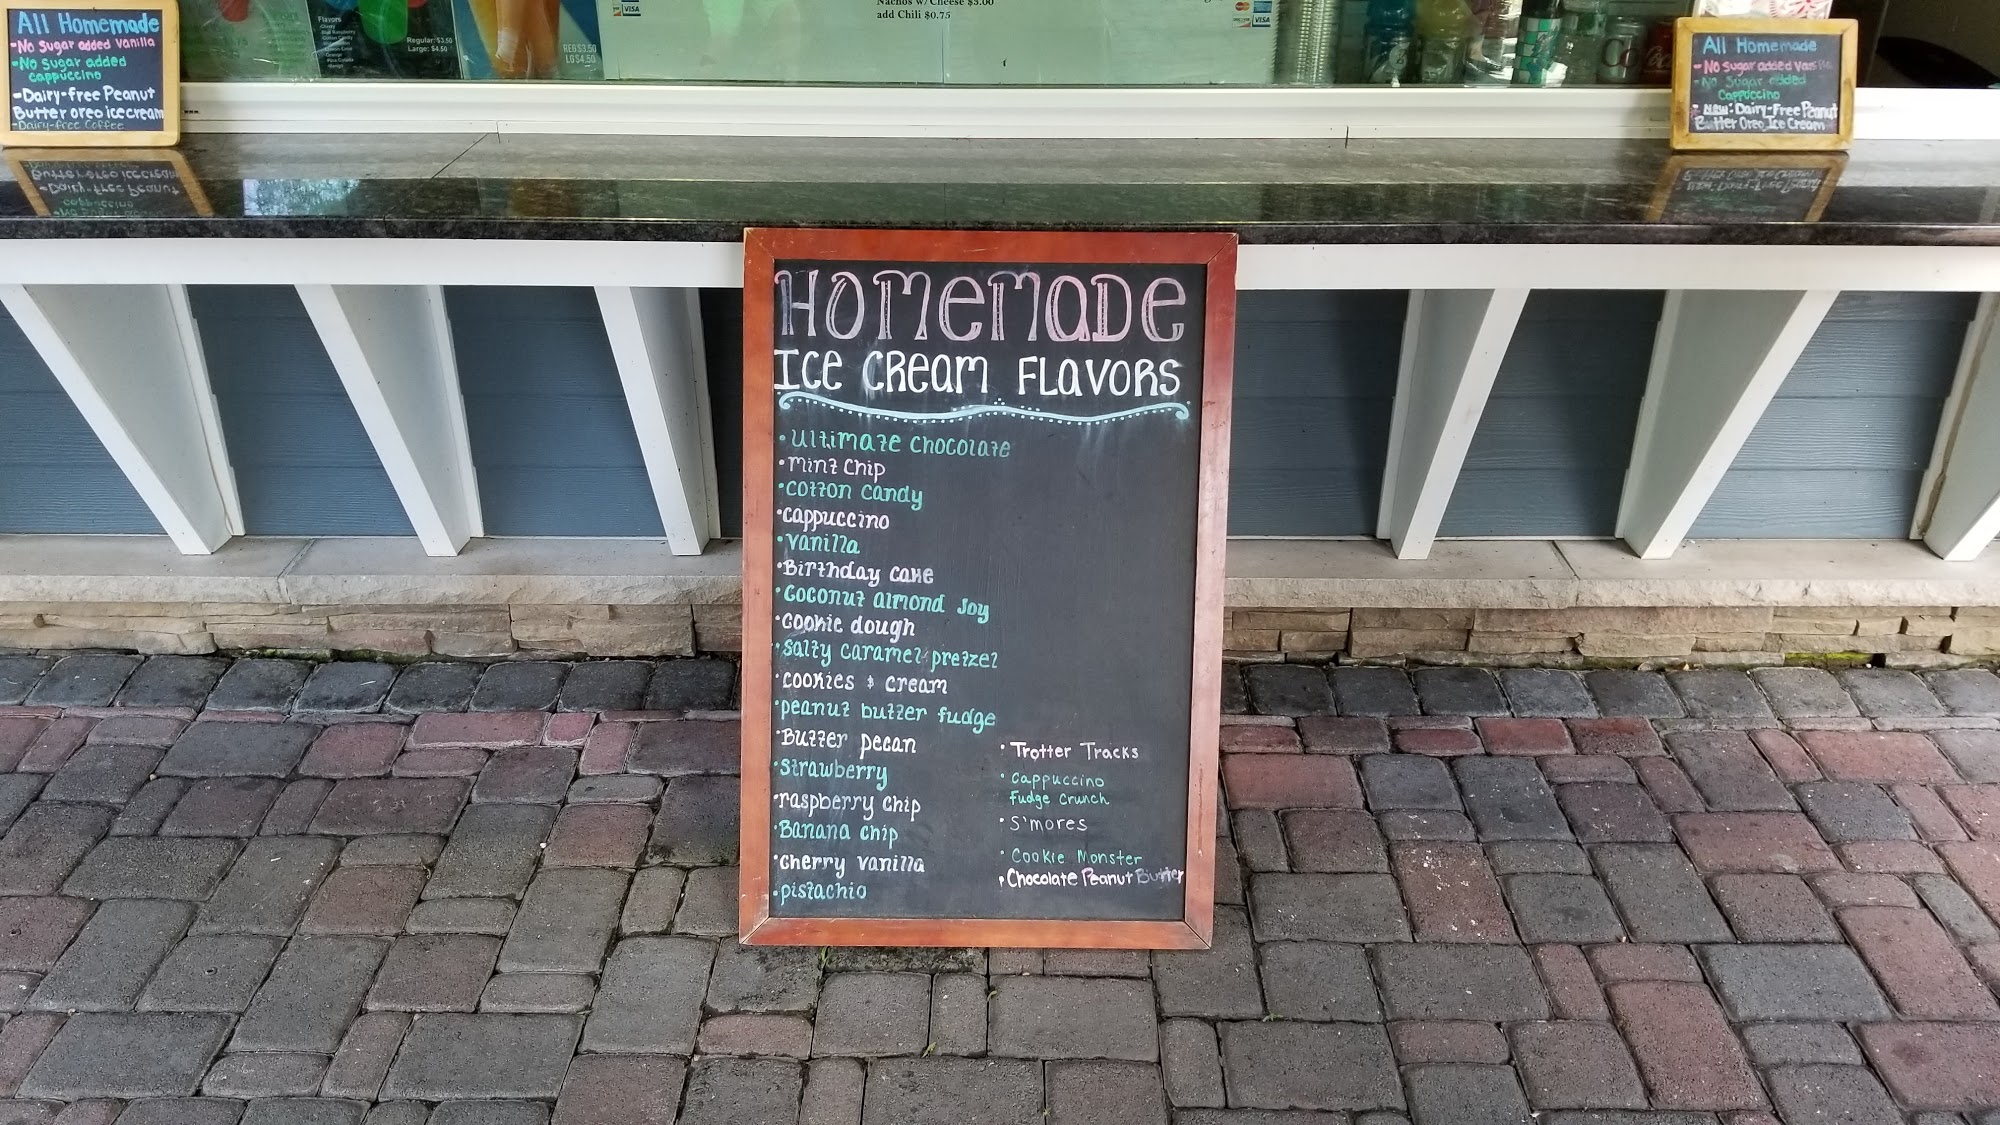 All Homemade
-No Sugar added vanilla
-No Sugar added
cappuccino
-Dairy-free Peanut
Butter oreo ice cream
-Dairy-free Coffee
Flavors
Regular: $3.50
Large: $4.50
REG $3.50
LG $4.50
VISA
Nachos w/Cheese $3.00
add Chili $0.75
VISA
All Homemade
- No Sugar added Vanilla
- No Sugar added
Cappuccino
- NEW: Dairy-Free Peanut
Butter Oreo Ice Cream
HOMEMADE
ICE CREAM FLAVORS
• Ultimate Chocolate
• Mint Chip
• Cotton Candy
• Cappuccino
• Vanilla
• Birthday Cake
• Coconut Almond Joy
• Cookie dough
• Salty Caramel pretzel
• Cookies & Cream
• peanut butter fudge
• Butter pecan
• Strawberry
• raspberry chip
• Banana chip
• Cherry Vanilla
• pistachio
• Trotter Tracks
• Cappuccino
Fudge Crunch
• S'mores
• Cookie Monster
• Chocolate Peanut Butter